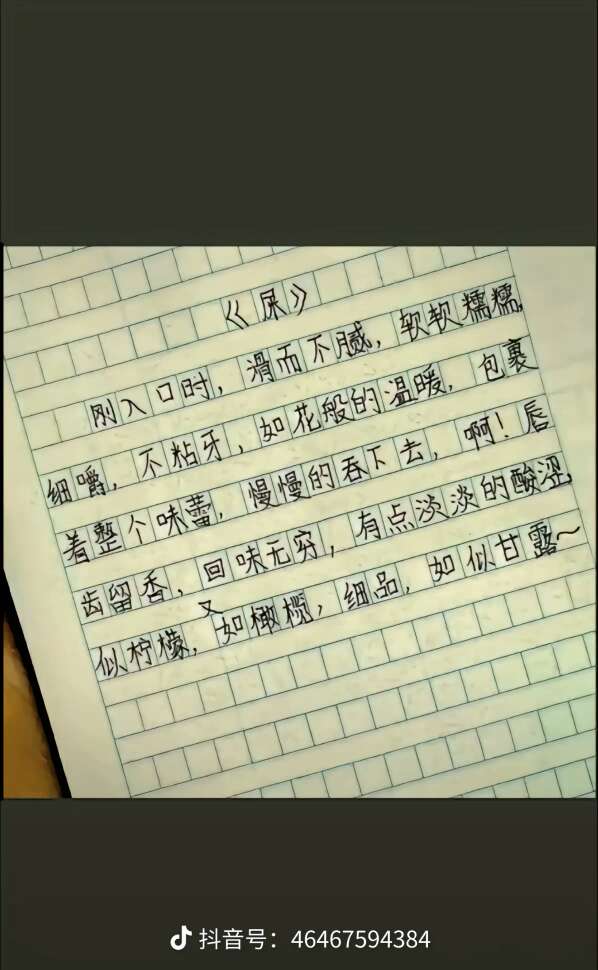 《屎》
刚入口时，滑而不腻，软软糯糯，
细嚼，不粘牙，如花般的温暖，包裹
着整个味蕾，慢慢的吞下去，啊！唇
齿留香，回味无穷，有点淡淡的酸涩，
似柠檬，又如橄榄，细品，如似甘露~
抖音号：46467594384